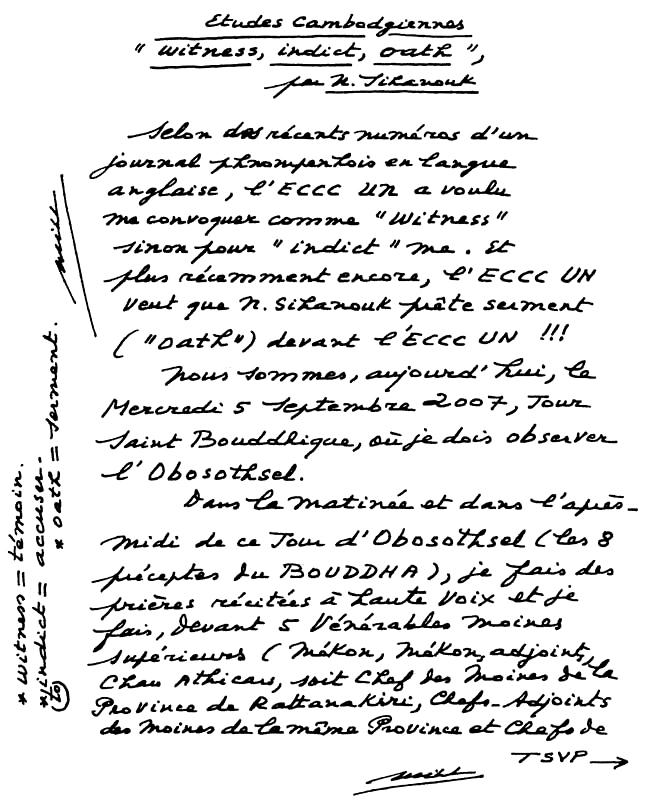 Etudes Cambodgiennes
"Witness, indict, oath",
par N. Sihanouk
Selon des récents numéros d'un
journal phnompenhois en langue
anglaise, l'ECCC UN a voulu
me convoquer comme "Witness"
sinon pour "indict" me. Et
plus récemment encore, l'ECCC UN
veut que N. Sihanouk prête serment
("oath") devant l'ECCC UN !!!
Nous sommes, aujourd'hui, le
Mercredi 5 Septembre 2007, Jour
Saint Bouddhique, où je dois observer
l'Obosothsel.
Dans la matinée et dans l'après-
midi de ce Jour d'Obosothsel (les 8
préceptes du BOUDDHA), je fais des
prières récitées à haute voix et je
fais, devant 5 Vénérables Moines
supérieurs (Mékon, Mékon adjoint,
Chau Athicar, soit Chef des Moines de la
Province de Rattanakiri, Chefs-Adjoints
des Moines de la même Province et Chefs de
TSVP →
* Witness = témoin.
* (to) indict = accuser.
* oath = serment.